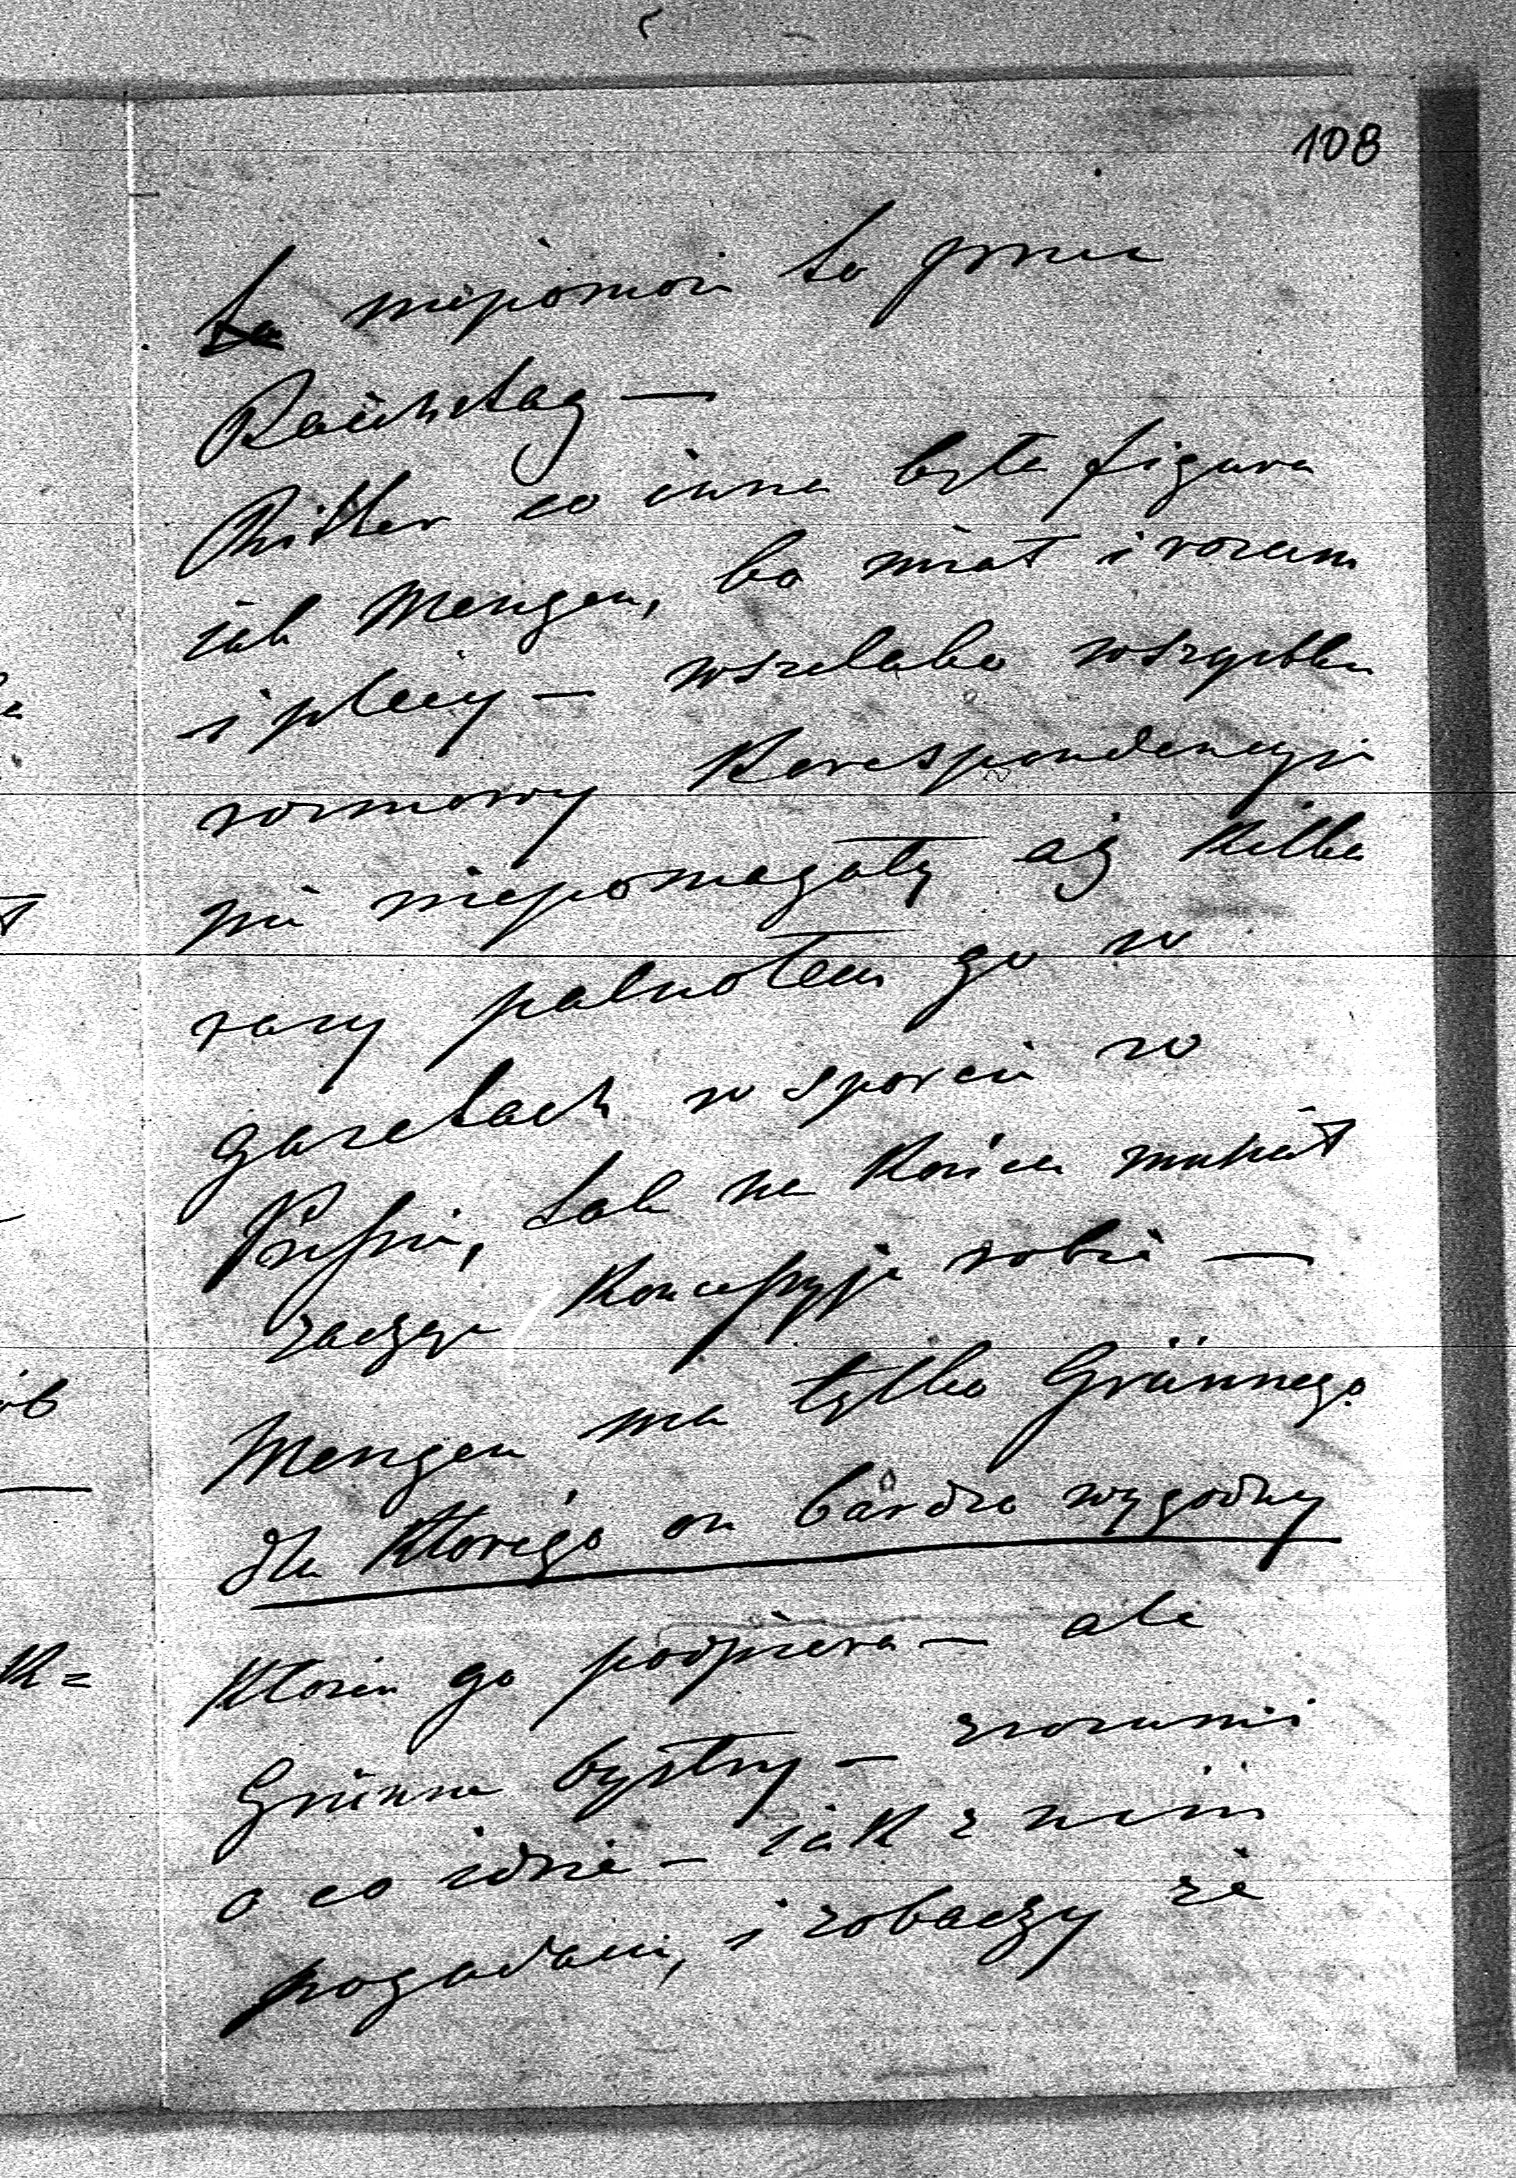 108
to niepomoże to przez
Raichstag —
Ritter co inna była figura
jak Mengen, bo miał i rozum
i plecy — wszelako wszystkie
rozmowy Korespondencyje
nic niepomagały aż kilka
razy palnołem go w
gazetach w sporcie w
tak na Końcu musiał
zacząć Koncessyje robić —
Mengen ma tylko Grünnego
dla Ktorego on bardzo wygodny
Ktoren go podpiera — ale
Grünne bystry — zrozumi
o co idzie — jak z nim
pogadam, i zobaczy że